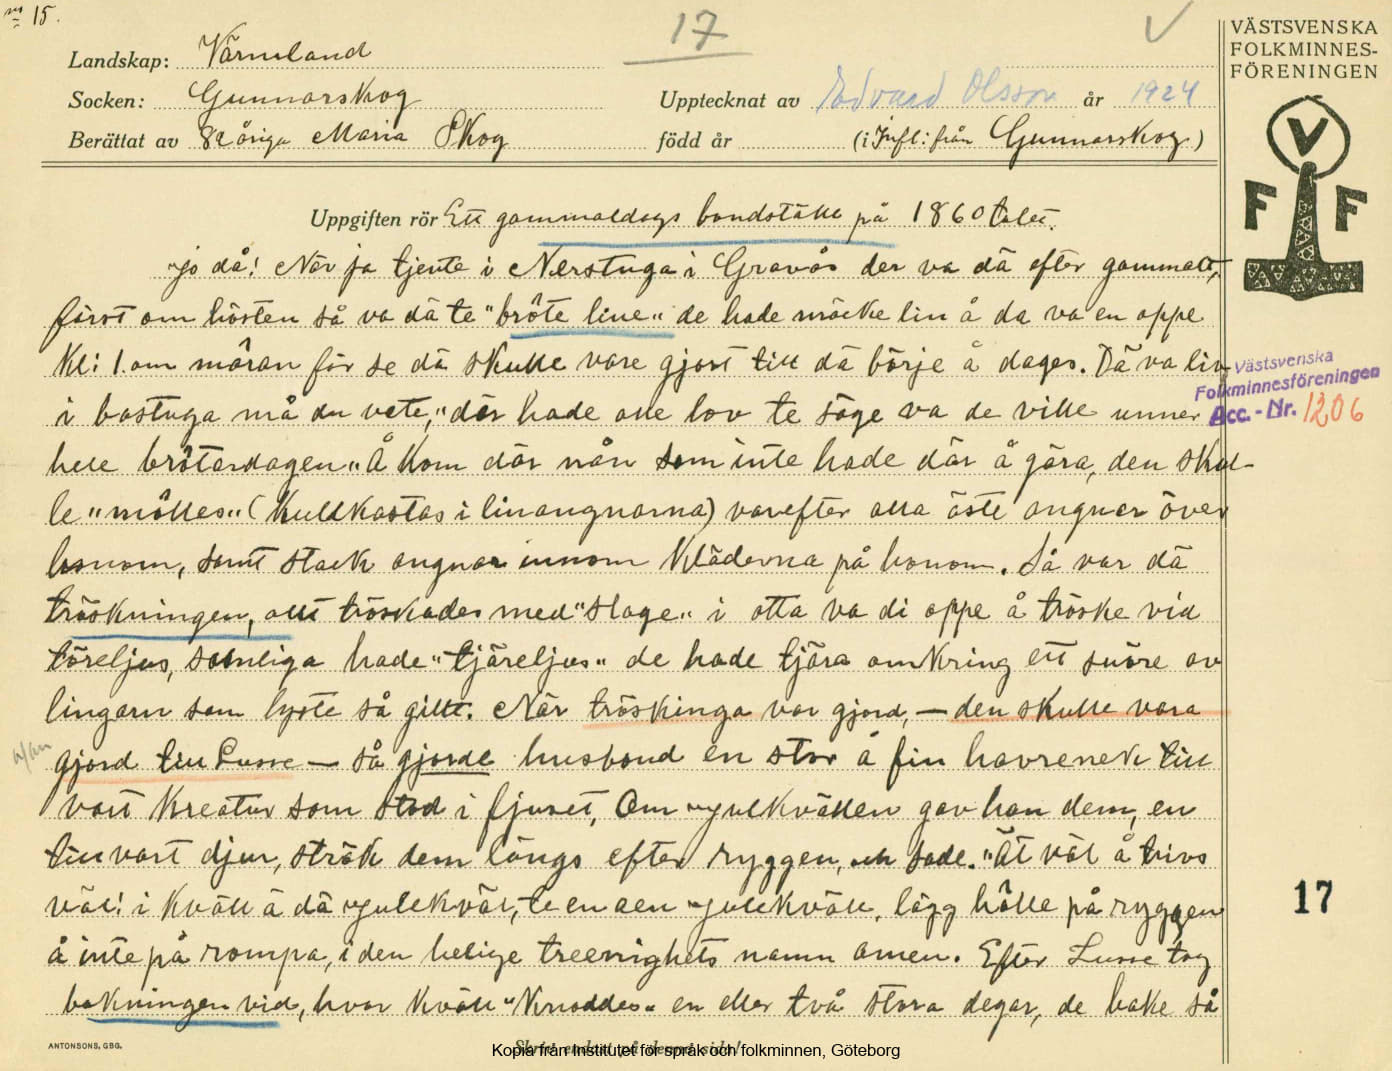 nr 15.
17
V
Landskap: Värmland
Socken: Gunnarskog
Upptecknat av Edvard Olsson år 1924
Berättat av 82 åriga Maria Skog
född år (i Infl: från Gunnarskog)
VÄSTSVENSKA
FOLKMINNES-
FÖRENINGEN
V
F F
Uppgiften rör Ett gammaldags bondställe på 1860 talet.
jo då! När ja tjente i Nerstuga i Gravås der va dä efter gammalt,
först om hösten så va dä te "bröte line" de hade möcke lin å da va en oppe
kl: 1. om môran för se dä skulle vare gjort till dä börje å dages. Dä va liv
i bastuga må du vete, "där hade alle lov te säge va de ville unner
hele brôtardagen" Å kom där nån som inte hade där å göra, den skul-
le "môlles" (kullkastas i linangnarna) varefter alla öste angner över
honom, samt stack angnar innom kläderna på honom. Så var dä
tröskningen, allt tröskades med "slage" i otta va di oppe å tröske vid
töreljus, somliga hade "tjäreljus" de hade tjära omkring ett snöre av
lingarn som lyste så gillt. När tröskinga var gjord, — den skulle vara
gjord till Lusse — så gjorde husbond en stor å fin havrenek till
vart kreatur som stod i fjuset, Om julkvällen gav han dem, en
till vart djur, strök dem längs efter ryggen, och sade. "Ät väl å trivs
väl! i kväll ä dä julekväl, te en aen julekväll, lägg hôlle på ryggen
å inte på rompa, i den helige treenighets namn amen. Efter Lusse tog
bakningen vid, hvar kväll "knoddes" en eller två stora degar, de bake så
Västsvenska
Folkminnesföreningen
Acc. - Nr. 1206
17
ANTONSONS, GBG.
Skriv endast på denna sida!
Kopia från Institutet för språk och folkminnen, Göteborg